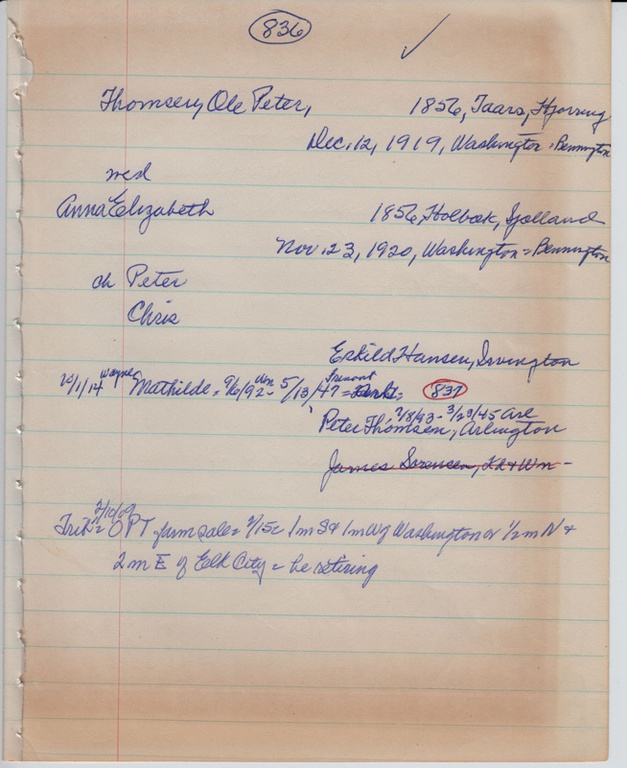 836
Thomsen, Ole Peter, 1856, Taars, Hjorring
Dec. 12, 1919, Washington = Bennington
wed
Anna Elizabeth 1856, Holbæk, Sjolland
Nov. 23, 1920, Washington = Bennington
ch Peter
Chris
Eskild Hansen, Irvington
Wayne Fremont
10/1/14 Mathilde = 9/6/92 - 5/13/47 = 837
3/29/45 Arl
Peter Thomsen, Arlington
James Sorensen,
2/10/09
OPT farm sale = 2/15 = 1 m S + 1 m W of Washington or 1/2 m N +
2 m E of Elk City = he retiring